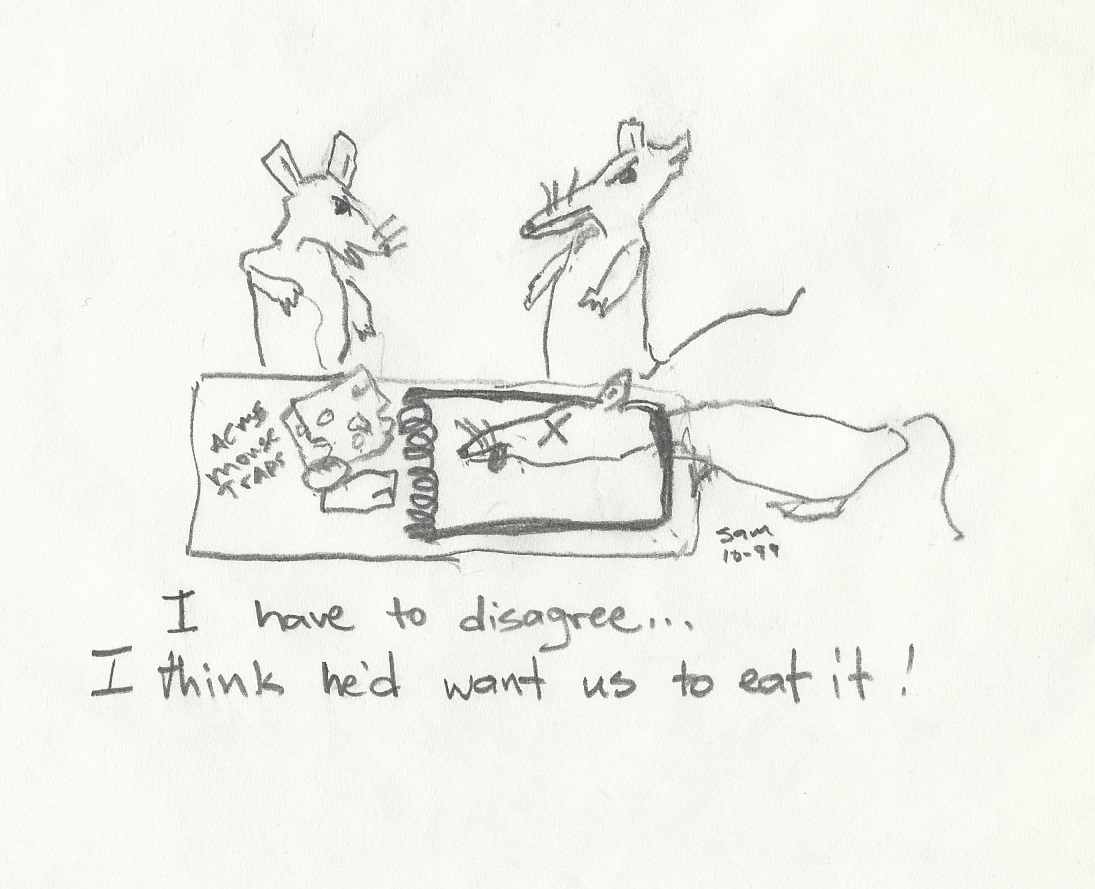 Acme
mouse
traps
Sam
10-99
I have to disagree...
I think he'd want us to eat it!